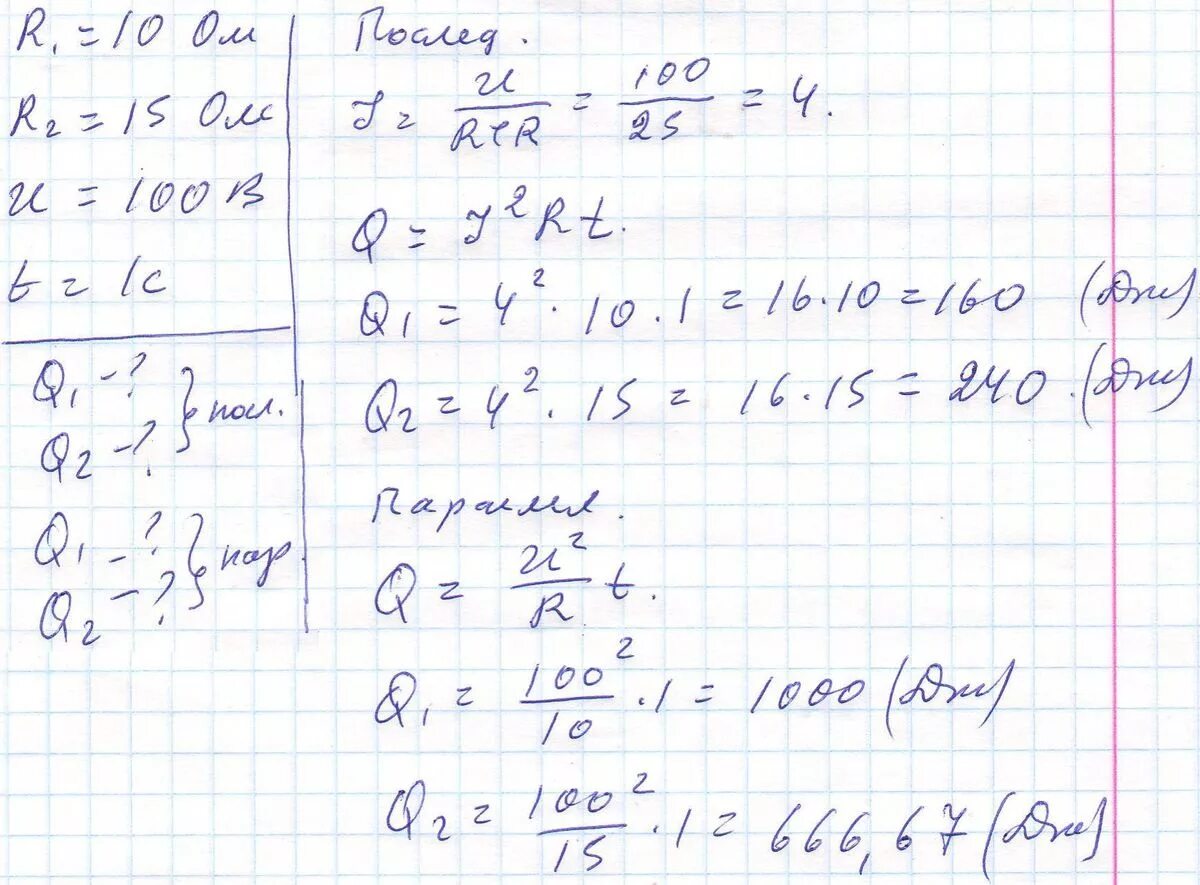 R₁ = 10 Ом
R₂ = 15 Ом
U = 100 В
t = 1с
Q₁ - ?
Q₂ - ? } посл.
Q₁ - ?
Q₂ - ? } пар.
Послед.
I = U/(R+R) = 100/25 = 4.
Q = I²Rt.
Q₁ = 4² · 10 · 1 = 16 · 10 = 160 (Дж)
Q₂ = 4² · 15 = 16 · 15 = 240. (Дж)
Паралл.
Q = U²/R t.
Q₁ = 100²/10 · 1 = 1000 (Дж)
Q₂ = 100²/15 · 1 = 666,67 (Дж)